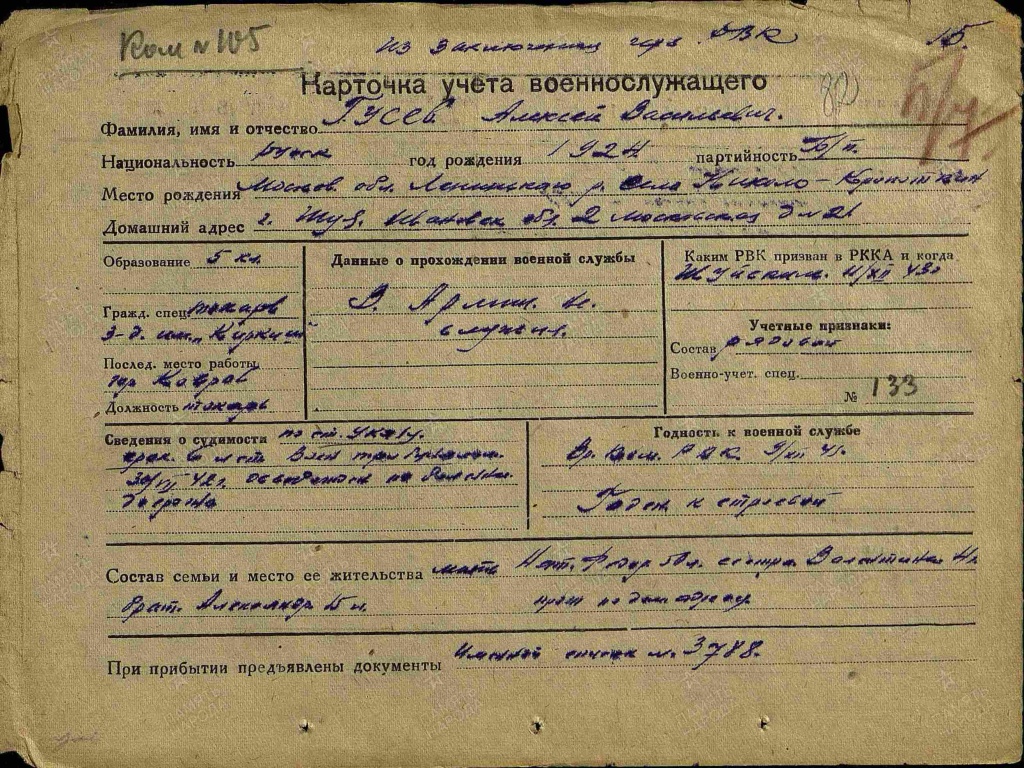 Ком №105
из заключения ДВК 15.
Карточка учета военнослужащего
82
Фамилия, имя и отчество Гусев Алексей Васильевич.
Национальность русск год рождения 1924 партийность Б/п.
Место рождения Москов. обл. Ленинского р. села Николо-
Домашний адрес г. Шуя. Ивановск обл. 2 Московская д № 21
Образование 5 кл.
Гражд. спец. токарь
З-д. им.
Послед. место работы
гор Ковров
Должность токарь
Данные о прохождении военной службы
В Армии не
служил.
Каким РВК призван в РККА и когда
Шуйским. 11/XII 43г
Учетные признаки:
Состав рядовой
Военно-учет. спец.
№ 133
Сведения о судимости по ст. Указу.
срок. 6 лет Воен трибуналом.
42г. освободился по
Годность к военной службе
Вр. Ком. РВК.
Годен к строевой
Состав семьи и место ее жительства мать сестра Валентина
брат. Александр 15 л. прож по дом адресу
При прибытии предъявлены документы Именной список № 3788.